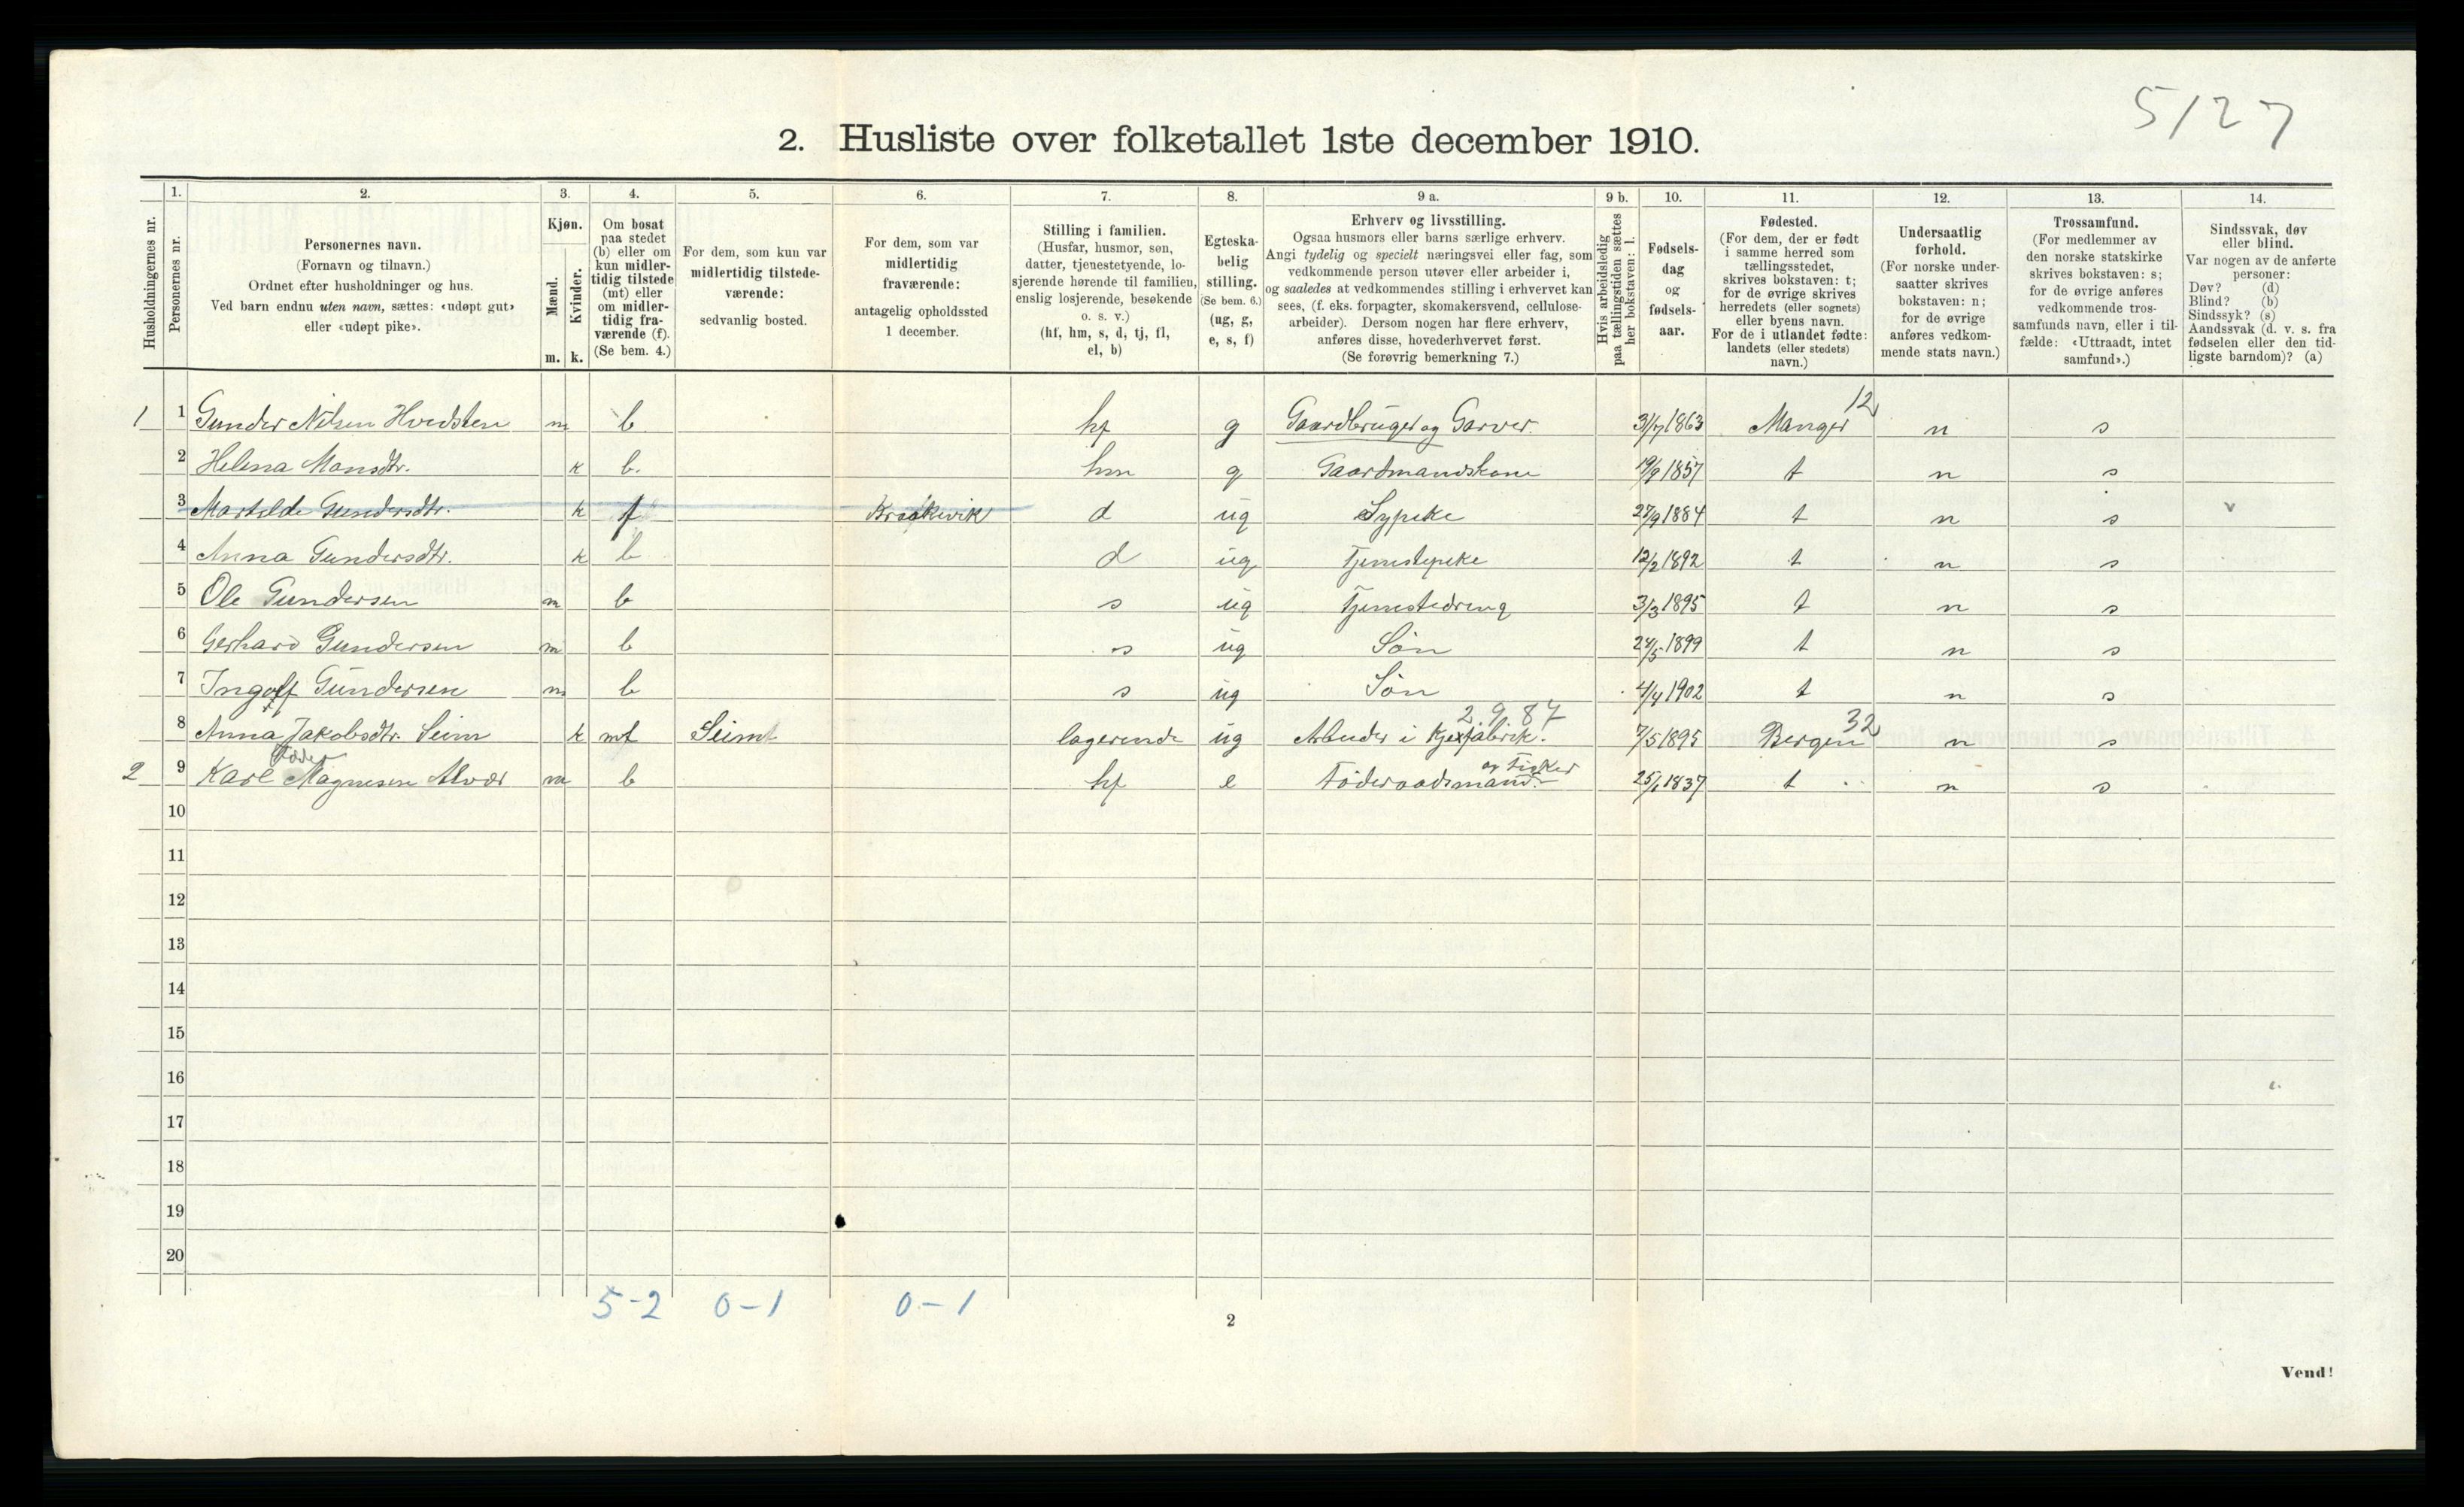 5/27
2. Husliste over folketallet 1ste december 1910.
Husholdningernes nr.
1.
Personernes nr.
2.
Personernes navn.
(Fornavn og tilnavn.)
Ordnet efter husholdninger og hus.
Ved barn endnu uten navn, sættes: «udøpt gut»
eller «udøpt pike».
3.
Kjøn.
Mænd.
Kvinder.
m. k.
4.
Om bosat
paa stedet
(b) eller om
kun midler-
tidig tilstede
(mt) eller
om midler-
tidig fra-
værende (f).
(Se bem. 4.)
5.
For dem, som kun var
midlertidig tilstede-
værende:
sedvanlig bosted.
6.
For dem, som var
midlertidig
fraværende:
antagelig opholdssted
1 december.
7.
Stilling i familien.
(Husfar, husmor, søn,
datter, tjenestetyende, lo-
sjerende hørende til familien,
enslig losjerende, besøkende
o. s. v.)
(hf, hm, s, d, tj, fl,
el, b)
8.
Egteska-
belig
stilling.
(Se bem. 6.)
(ug, g,
e, s, f)
9 a.
Erhverv og livsstilling.
Ogsaa husmors eller barns særlige erhverv.
Angi tydelig og specielt næringsvei eller fag, som
vedkommende person utøver eller arbeider i,
og saaledes at vedkommendes stilling i erhvervet kan
sees, (f. eks. forpagter, skomakersvend, cellulose-
arbeider). Dersom nogen har flere erhverv,
anføres disse, hovederhvervet først.
(Se forøvrig bemerkning 7.)
9 b.
Hvis arbeidsledig
paa tællingstiden sættes
her bokstaven: l.
10.
Fødsels-
dag
og
fødsels-
aar.
11.
Fødested.
(For dem, der er født
i samme herred som
tællingsstedet,
skrives bokstaven: t;
for de øvrige skrives
herredets (eller sognets)
eller byens navn.
For de i utlandet fødte:
landets (eller stedets)
navn.)
12.
Undersaatlig
forhold.
(For norske under-
saatter skrives
bokstaven: n;
for de øvrige
anføres vedkom-
mende stats navn.)
13.
Trossamfund.
(For medlemmer av
den norske statskirke
skrives bokstaven: s;
for de øvrige anføres
vedkommende tros-
samfunds navn, eller i til-
fælde: «Uttraadt, intet
samfund».)
14.
Sindssvak, døv
eller blind.
Var nogen av de anførte
personer:
Døv? (d)
Blind? (b)
Sindssyk? (s)
Aandssvak (d. v. s. fra
fødselen eller den tid-
ligste barndom)? (a)
1 1 Gunder Nilsen Hvedsten m b hf g Gaardbruger og Garver 31/7 1863 Manger 12 n s
2 Helena Monsdtr. k b. hm g Gaardmandskone 19/9 1857 t n s
3 Martilde Gundersdtr. k f Kraakevik d ug Sypike 27/9 1884 t n s v
4 Anna Gundersdtr. k b d ug Tjenestepike 12/2 1892 t n s
5 Ole Gundersen m b s ug Tjenestedreng 3/3 1895 t n s
6 Gerhard Gundersen m b s ug Søn 24/5 1899 t n s
7 Ingolf Gundersen m b s ug Søn 4/4 1902 t n s
2.9.87
8 Anna Jakobsdtr. Seim k mt Seim logerende ug Arbeider i Kjexfabrik. 7/5 1895 Bergen 32 n s
2 9 Karl Magnesen Alvær m b hf e Föderaadsmand og Fisker 25/1 1837 t n s
10
11
12
13
14
15
16
17
18
19
20
5-2 0-1 0-1
2
Vend!